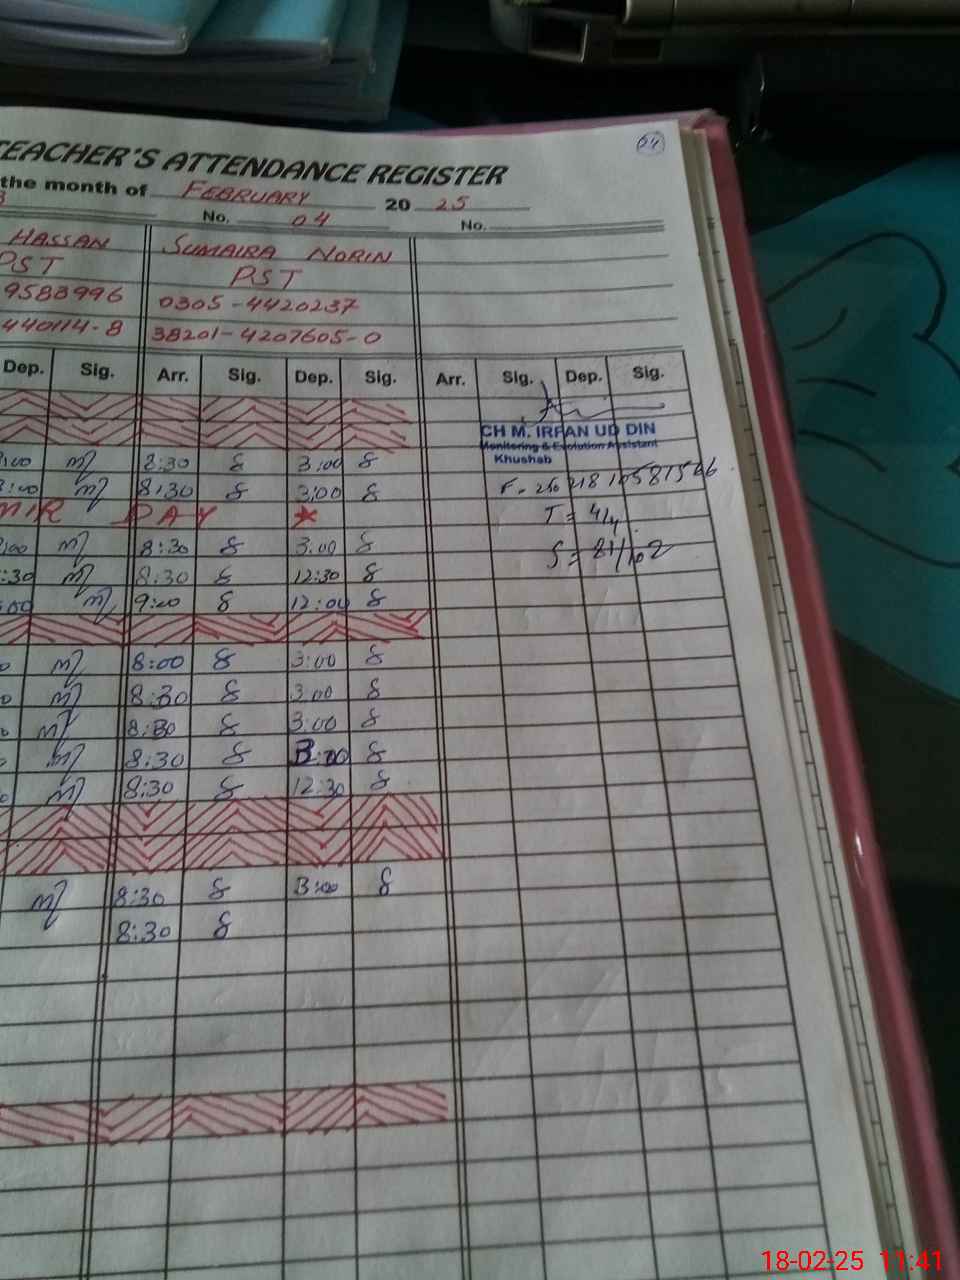 24
TEACHER'S ATTENDANCE REGISTER
the month of FEBRUARY 20 25
No. 04 No.
HASSAN SUMAIRA NORIN
PST PST
9583996 0305-4420237
440114-8 38201-4207605-0
Dep. Sig. Arr. Sig. Dep. Sig. Arr. Sig. Dep. Sig.
CH M. IRFAN UD DIN
Monitoring & Evolution Assistant
Khushab
:00 8:30 3:00
3:00 8:30 3:00
MIR DAY
T = 4/4
:00 8:30 3:00
S = 81/102
:30 8:30 12:30
:00 9:20 12:00
8:00 3:00
8:30 3:00
8:30 3:00
8:30 3:00
8:30 12:30
8:30 3:00
8:30
18-02-25 11:41